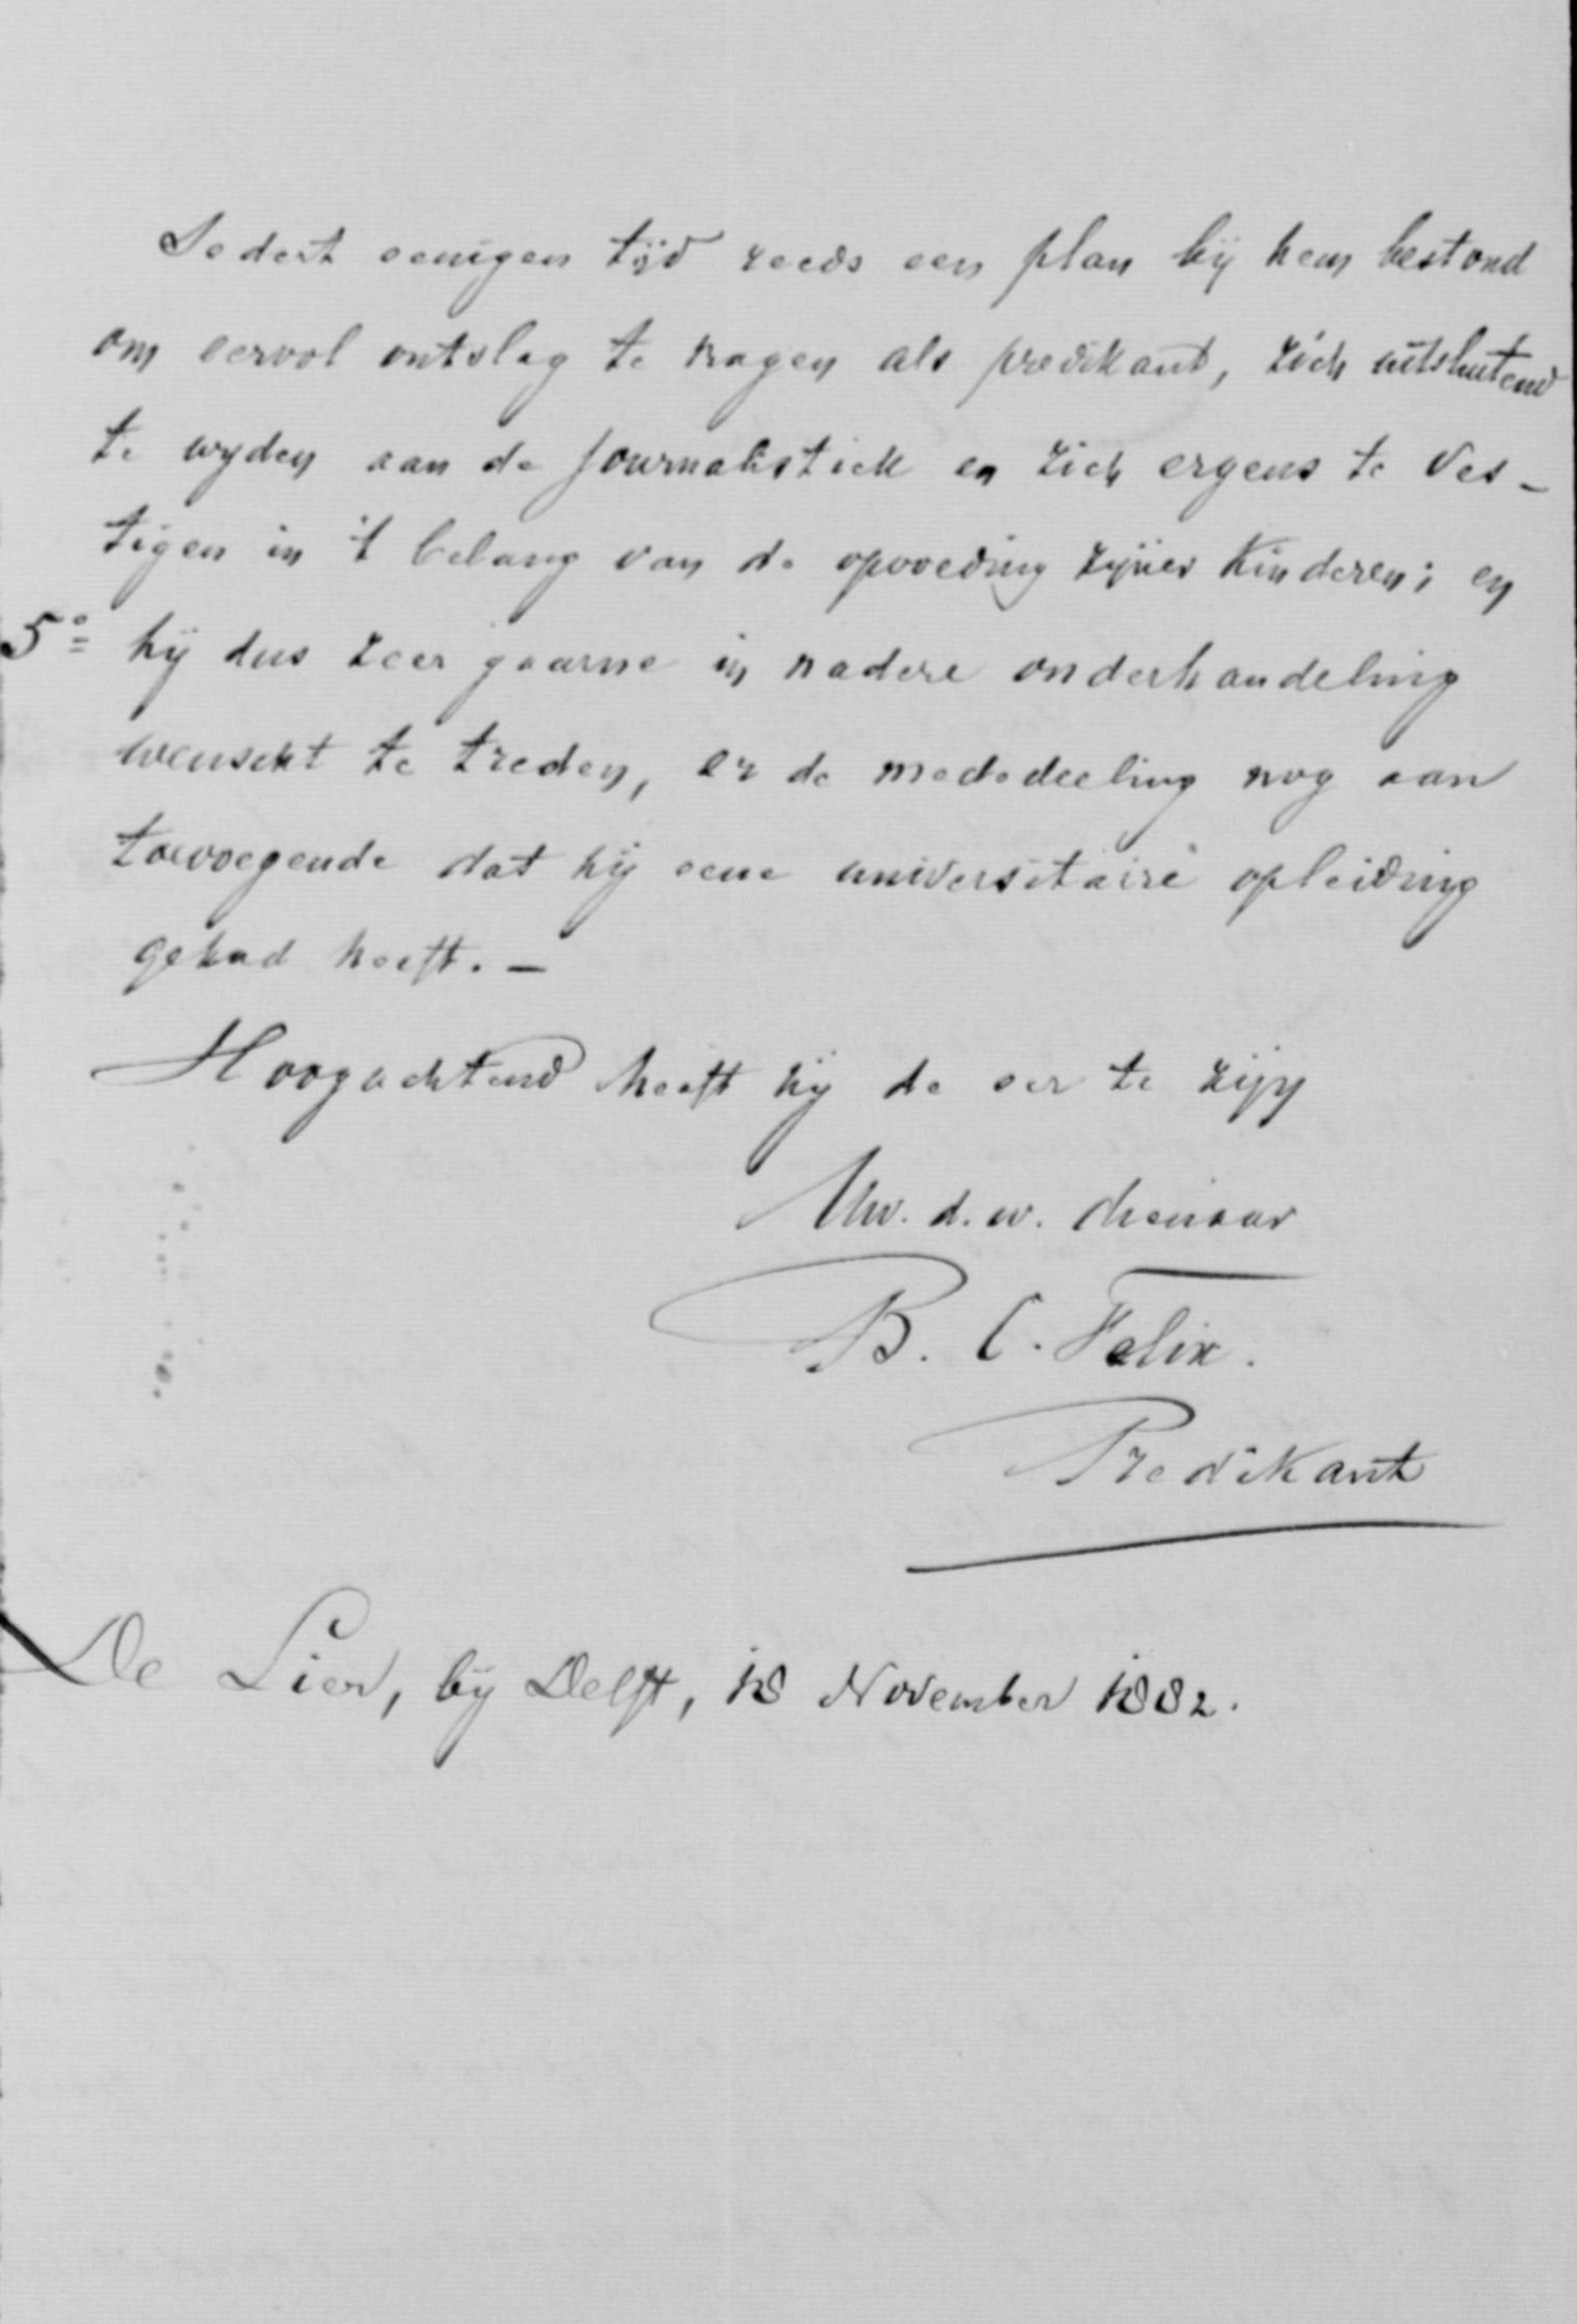 Sedert eenigen tijd reeds een plan bij hem bestond
om eervol ontslag te vragen als predikant, zich uitsluitend
te wyden aan de journalistiek en zich ergens te ves-
tigen in 't belang van de opvoeding zijner kinderen; en
5o hij dus zeer gaarne in nadere onderhandeling
wenscht te treden, er de mededeeling nog aan
toevoegende dat hij eene universitaire opleiding
gehad heeft. -
Hoogachtend heeft hij de eer te zijn
Uw. d. w. dienaar
B. C. Felix.
Predikant
De Lier, bij Delft, 18 November 1882.